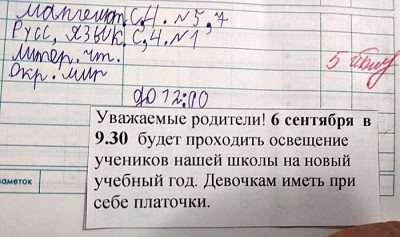 математ. с,4. №5, 7
Русс, язык. с,4. №1
литер. чт.
Окр. мир
до 12:00
Уважаемые родители! 6 сентября в
9.30 будет проходить освещение
учеников нашей школы на новый
учебный год. Девочкам иметь при
себе платочки.
аметок